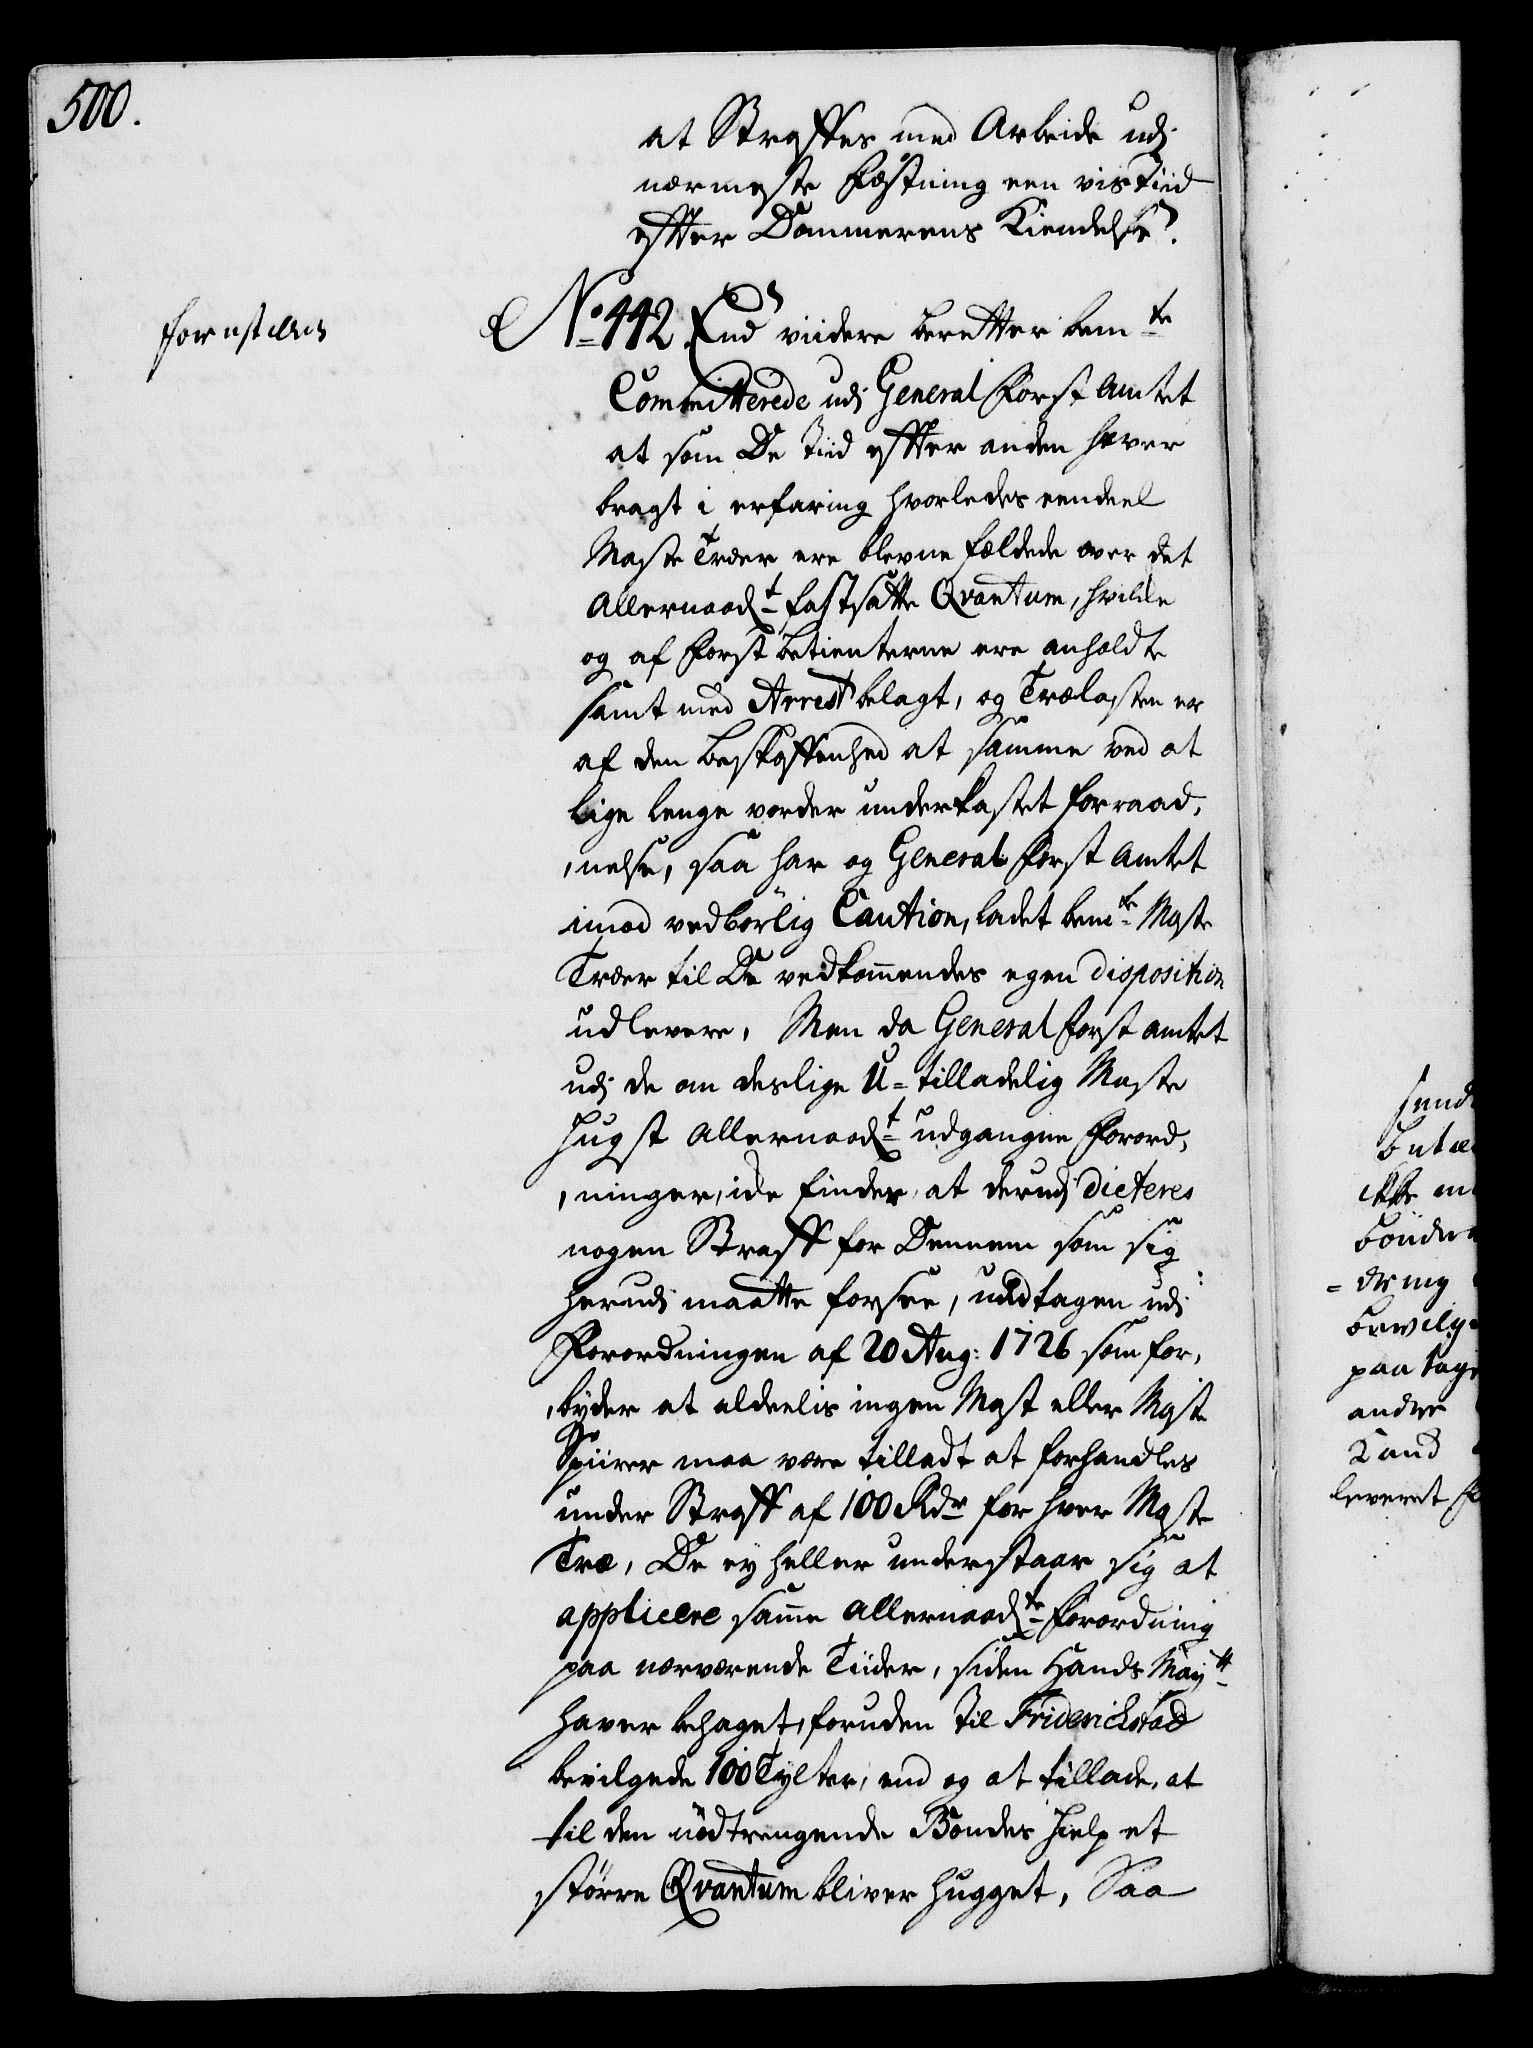 500.
at Straffes med Arbeide udj
nærmeste Fæstning een vis Tiid
effter Dommerens Kiendelse.
forestilles
No 442 End viidere beretter bemte
Committerede udj General Forst Amtet
at som De Tiid effter anden haver
bragt i erfaring hvorledes eendeel
Maste Træer ere blevne fældede over det
Allernaadt fastsatte Qvantum, hvilke
og af Forst betienterne ere anholdte
samt med Arrest belagt, og Trælasten er
af den beskaffenhed at samme ved at
lige lenge vorder underkastet forraad,
,nelse, saa har og General Forst Amtet
imod vedbörlig Caution, ladet bemte Maste
Træer til De vedkommendes egen disposition
udlevere, Men da General Forst amtet
udj de om deslige U-tilladelig Maste
Hugst Allernaadt udgangne Forord,
,ninger, icke finder, at derudj dicteres
nogen Straff for Dennem som sig
herudj maatte forsee, undtagen udj
Forordningen af 20 Aug: 1726 som for,
,byder at aldeelis ingen Mast eller Maste
Spiirer maa være tilladt at forhandles
under Straff af 100 Rdr for hver Maste
Træ, De ey heller understaar sig at
applicere samme Allernaadte Forordning
paa nærværende Tiider, siden Hands Mayt
haver behaget, foruden til Friderichstad
bevilgede 100 Tylter, end og at tillade, at
til den nödtrengende Bondes Hielp et
större Qvantum bliver hugget, Saa